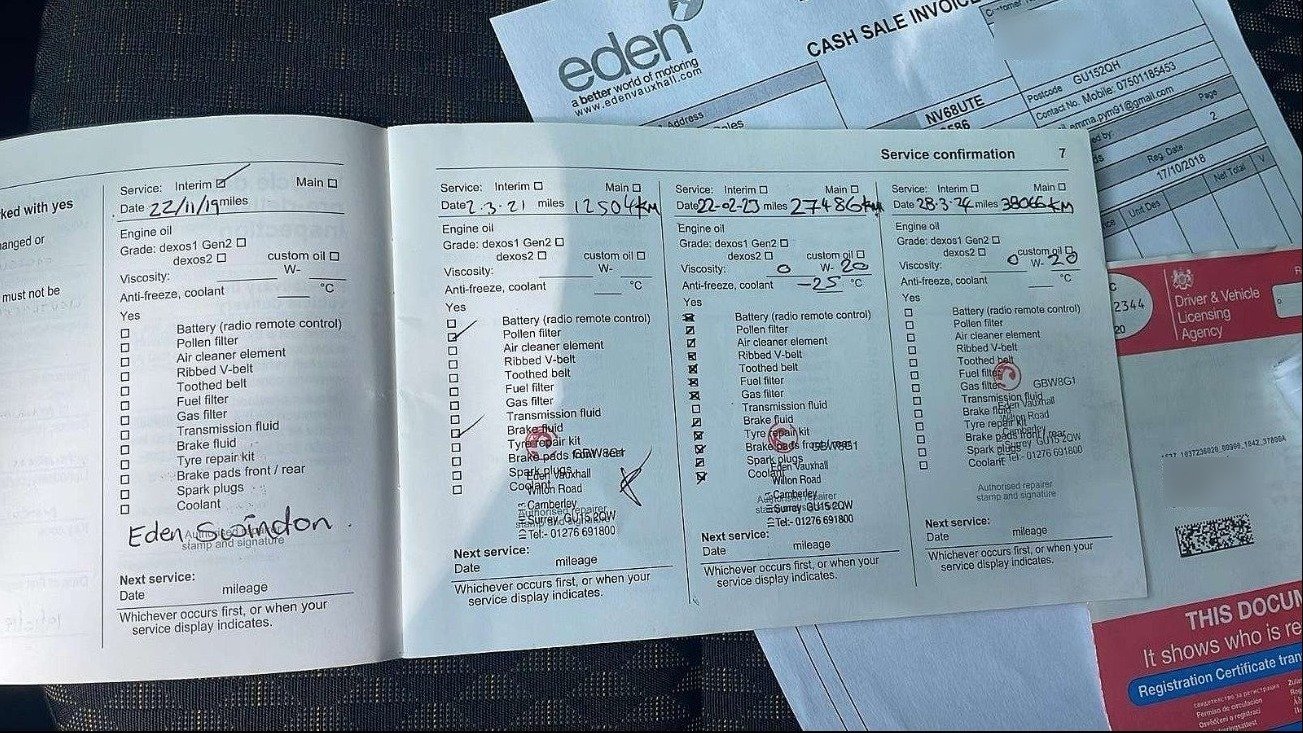 eden
a better world of motoring
www.edenvauxhall.com
CASH SALE INVOICE
Address
NV68UTE
Postcode GU152QH
Contact No. Mobile: 07501185453
emma.pym91@gmail.com
Page
2
Reg. Date
17/10/2018
Unit Des
Net Total
V
ked with yes
anged or
must not be
Service: Interim Main
Date 22/11/19 miles
Engine oil
Grade: dexos1 Gen2
dexos2 custom oil
Viscosity: W-
Anti-freeze, coolant °C
Yes
Battery (radio remote control)
Pollen filter
Air cleaner element
Ribbed V-belt
Toothed belt
Fuel filter
Gas filter
Transmission fluid
Brake fluid
Tyre repair kit
Brake pads front / rear
Spark plugs
Coolant
Eden Swindon
Authorised repairer
stamp and signature
Next service:
Date mileage
Whichever occurs first, or when your
service display indicates.
Service confirmation 7
Service: Interim Main
Date 2.3.21 miles 12504KM
Engine oil
Grade: dexos1 Gen2
dexos2 custom oil
Viscosity: W-
Anti-freeze, coolant °C
Yes
Battery (radio remote control)
Pollen filter
Air cleaner element
Ribbed V-belt
Toothed belt
Fuel filter
Gas filter
Transmission fluid
Brake fluid
Tyre repair kit
Brake pads front / rear
GBW8G1
Spark plugs
Eden Vauxhall
Coolant
Wilton Road
Camberley
Surrey GU15 2QW
Tel:- 01276 691800
Next service:
Date mileage
Whichever occurs first, or when your
service display indicates.
Service: Interim Main
Date 22-02-23 miles 27486KM
Engine oil
Grade: dexos1 Gen2
dexos2 custom oil
Viscosity: 0 W- 20
Anti-freeze, coolant -25 °C
Yes
Battery (radio remote control)
Pollen filter
Air cleaner element
Ribbed V-belt
Toothed belt
Fuel filter
Gas filter
Transmission fluid
Brake fluid
Tyre repair kit
Brake pads front / rear
GBW8G1
Spark plugs
Eden Vauxhall
Coolant
Wilton Road
Camberley
Authorised repairer
Surrey GU15 2QW
stamp and signature
Tel:- 01276 691800
Next service:
Date mileage
Whichever occurs first, or when your
service display indicates.
Service: Interim Main
Date 28-3-24 miles 38066KM
Engine oil
Grade: dexos1 Gen2
dexos2 custom oil
Viscosity: 0 W- 20
Anti-freeze, coolant °C
Yes
Battery (radio remote control)
Pollen filter
Air cleaner element
Ribbed V-belt
Toothed belt
Fuel filter
Gas filter
GBW8G1
Transmission fluid
Eden Vauxhall
Brake fluid
Wilton Road
Tyre repair kit
Camberley
Brake pads front / rear
Surrey GU15 2QW
Spark plugs
Coolant
Tel:- 01276 691800
Authorised repairer
stamp and signature
Next service:
Date mileage
Whichever occurs first, or when your
service display indicates.
2344
20
Driver & Vehicle
Licensing
Agency
THIS DOCUM
It shows who is re
Registration Certificate tran